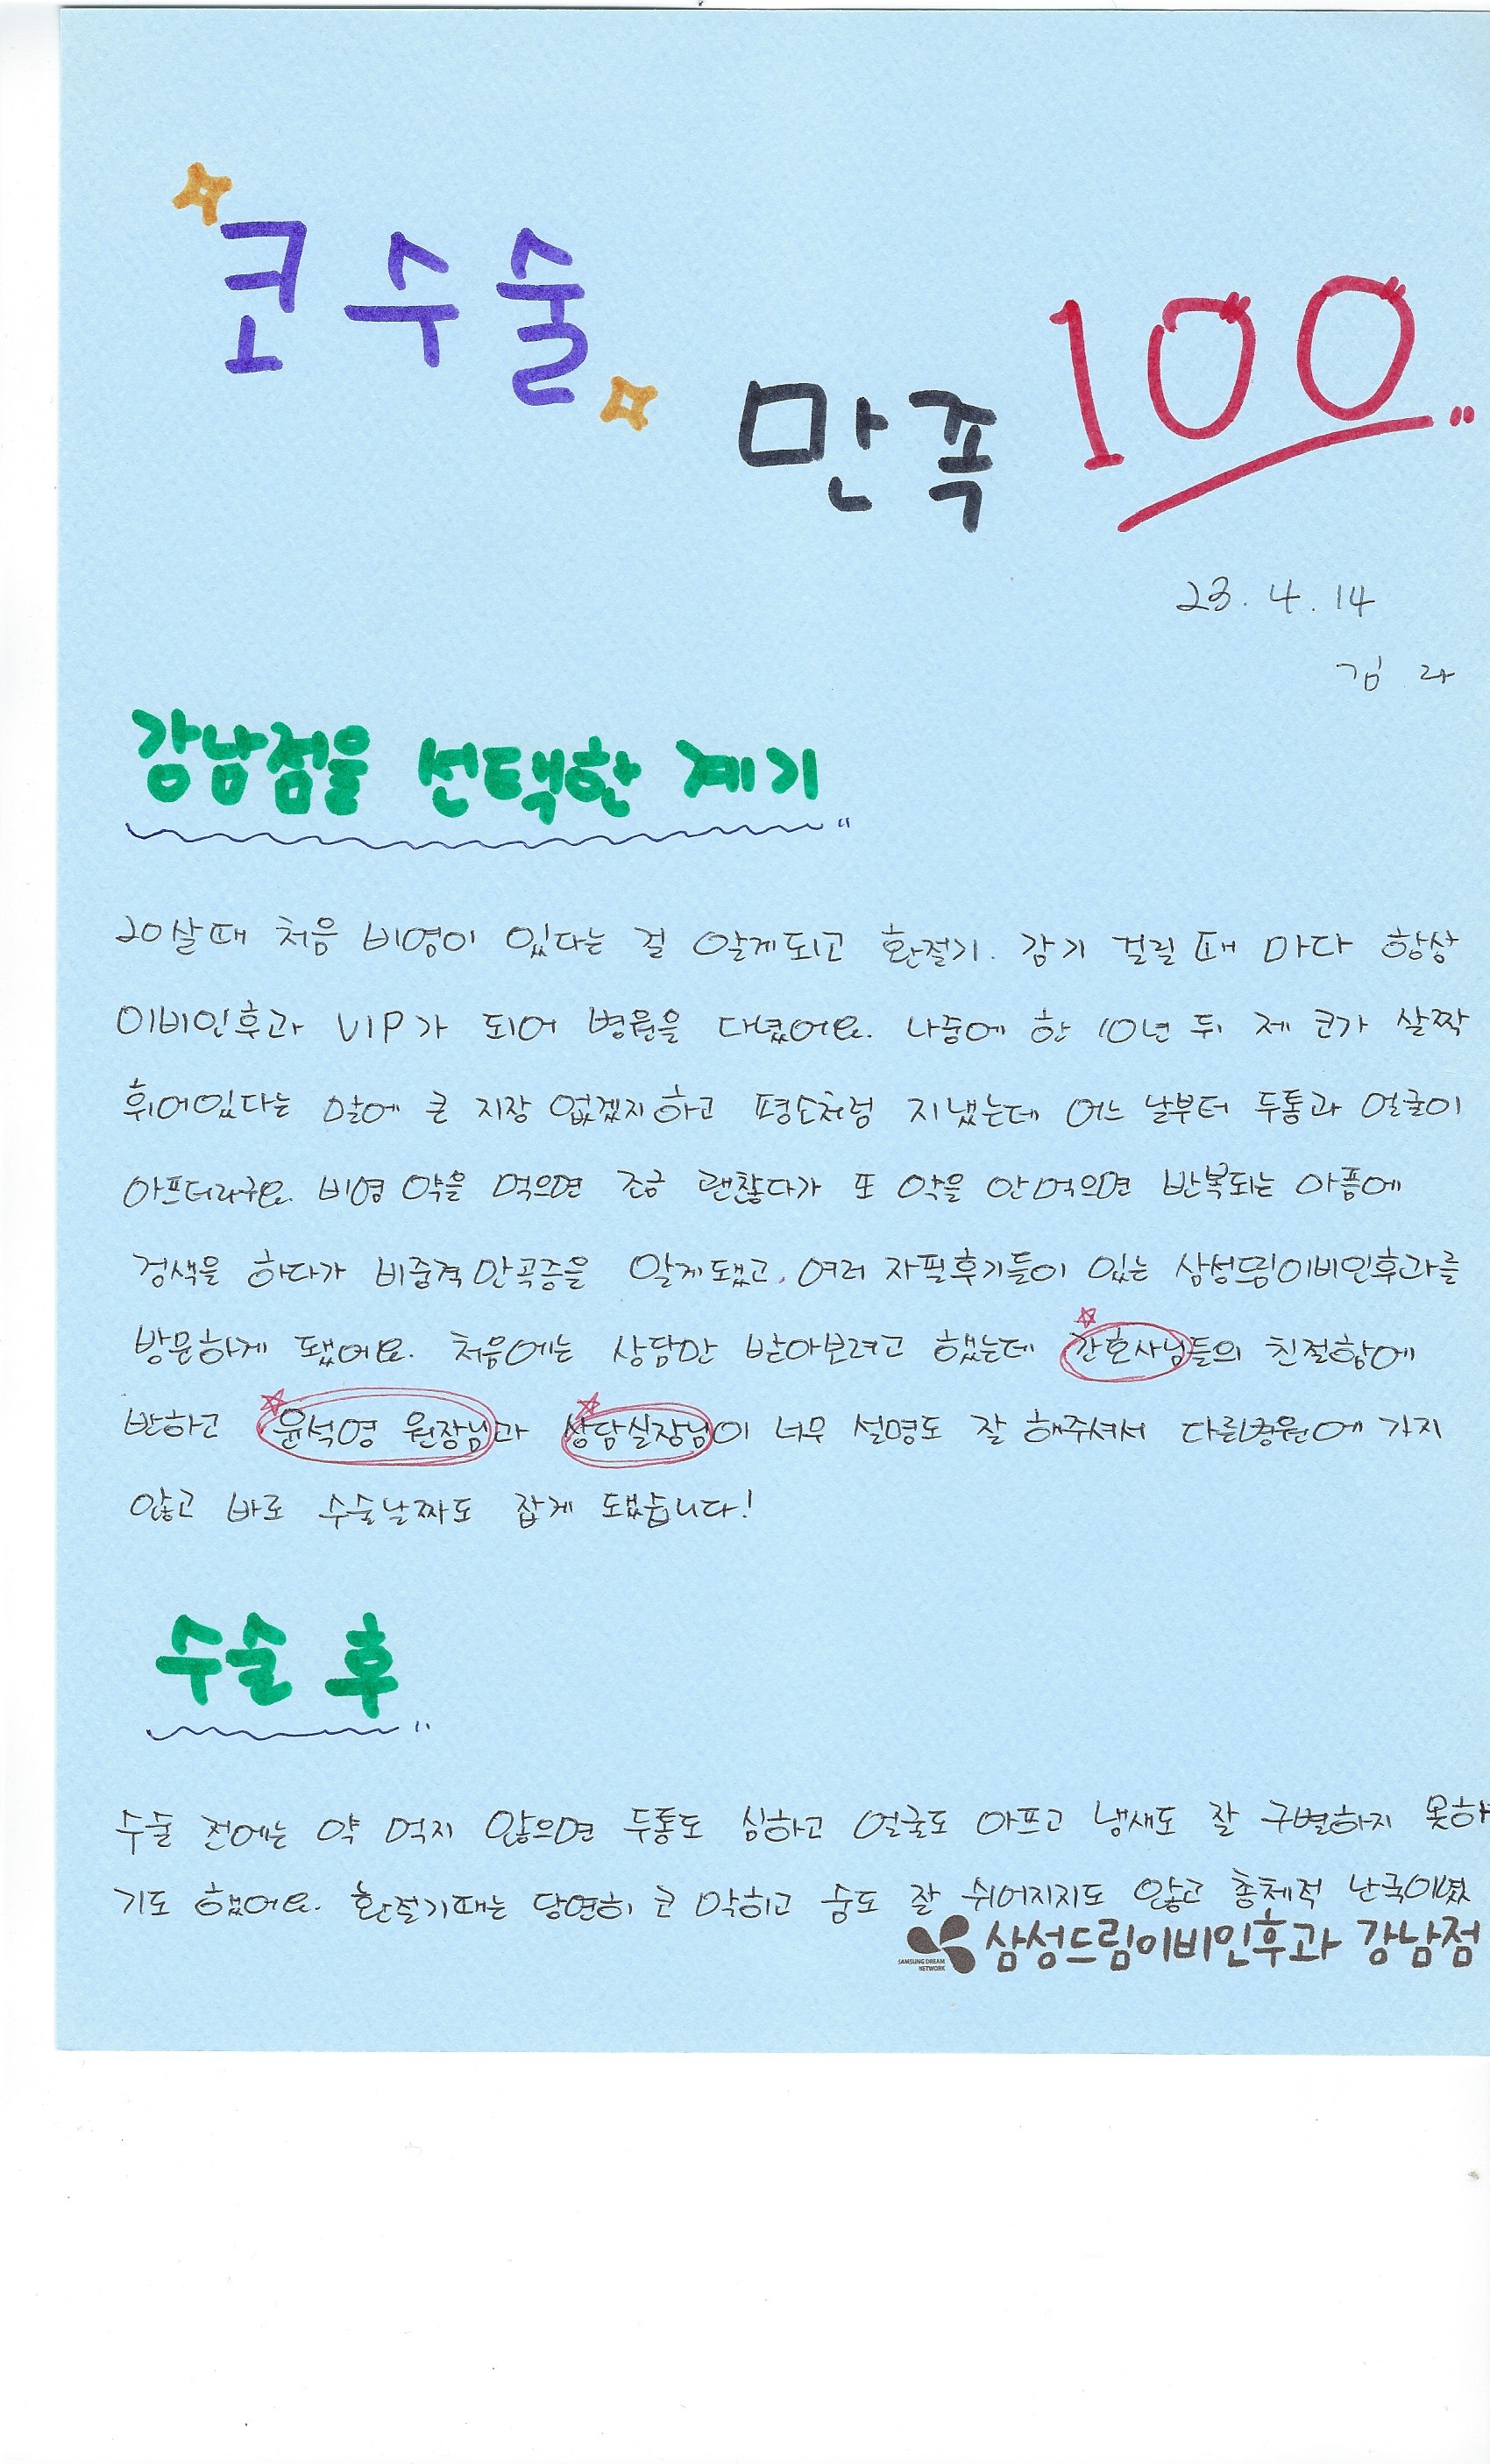 코수술
만족 100
23. 4. 14
김 라
강남점을 선택한 계기
20살때 처음 비염이 있다는 걸 알게되고 환절기. 감기 걸릴 때 마다 항상
이비인후과 VIP가 되어 병원을 다녔어요. 나중에 한 10년 뒤 제 코가 살짝
휘어있다는 말에 큰 지장 없겠지하고 평소처럼 지냈는데 어느 날부터 두통과 얼굴이
아프더라구요. 비염 약을 먹으면 조금 괜찮다가 또 약을 안먹으면 반복되는 아픔에
검색을 하다가 비중격만곡증을 알게됐고, 여러 자필후기들이 있는 삼성드림이비인후과를
방문하게 됐어요. 처음에는 상담만 받아보려고 했는데 간호사님들의 친절함에
반하고 윤석영 원장님과 상담실장님이 너무 설명도 잘 해주셔서 다른병원에 가지
않고 바로 수술날짜도 잡게 됐습니다!
수술 후
수술 전에는 약 먹지 않으면 두통도 심하고 얼굴도 아프고 냄새도 잘 구별하지 못하
기도 했어요. 환절기때는 당연히 코 막히고 숨도 잘 쉬어지지도 않고 총체적 난국이였
SAMSUNG DREAM NETWORK 삼성드림이비인후과 강남점